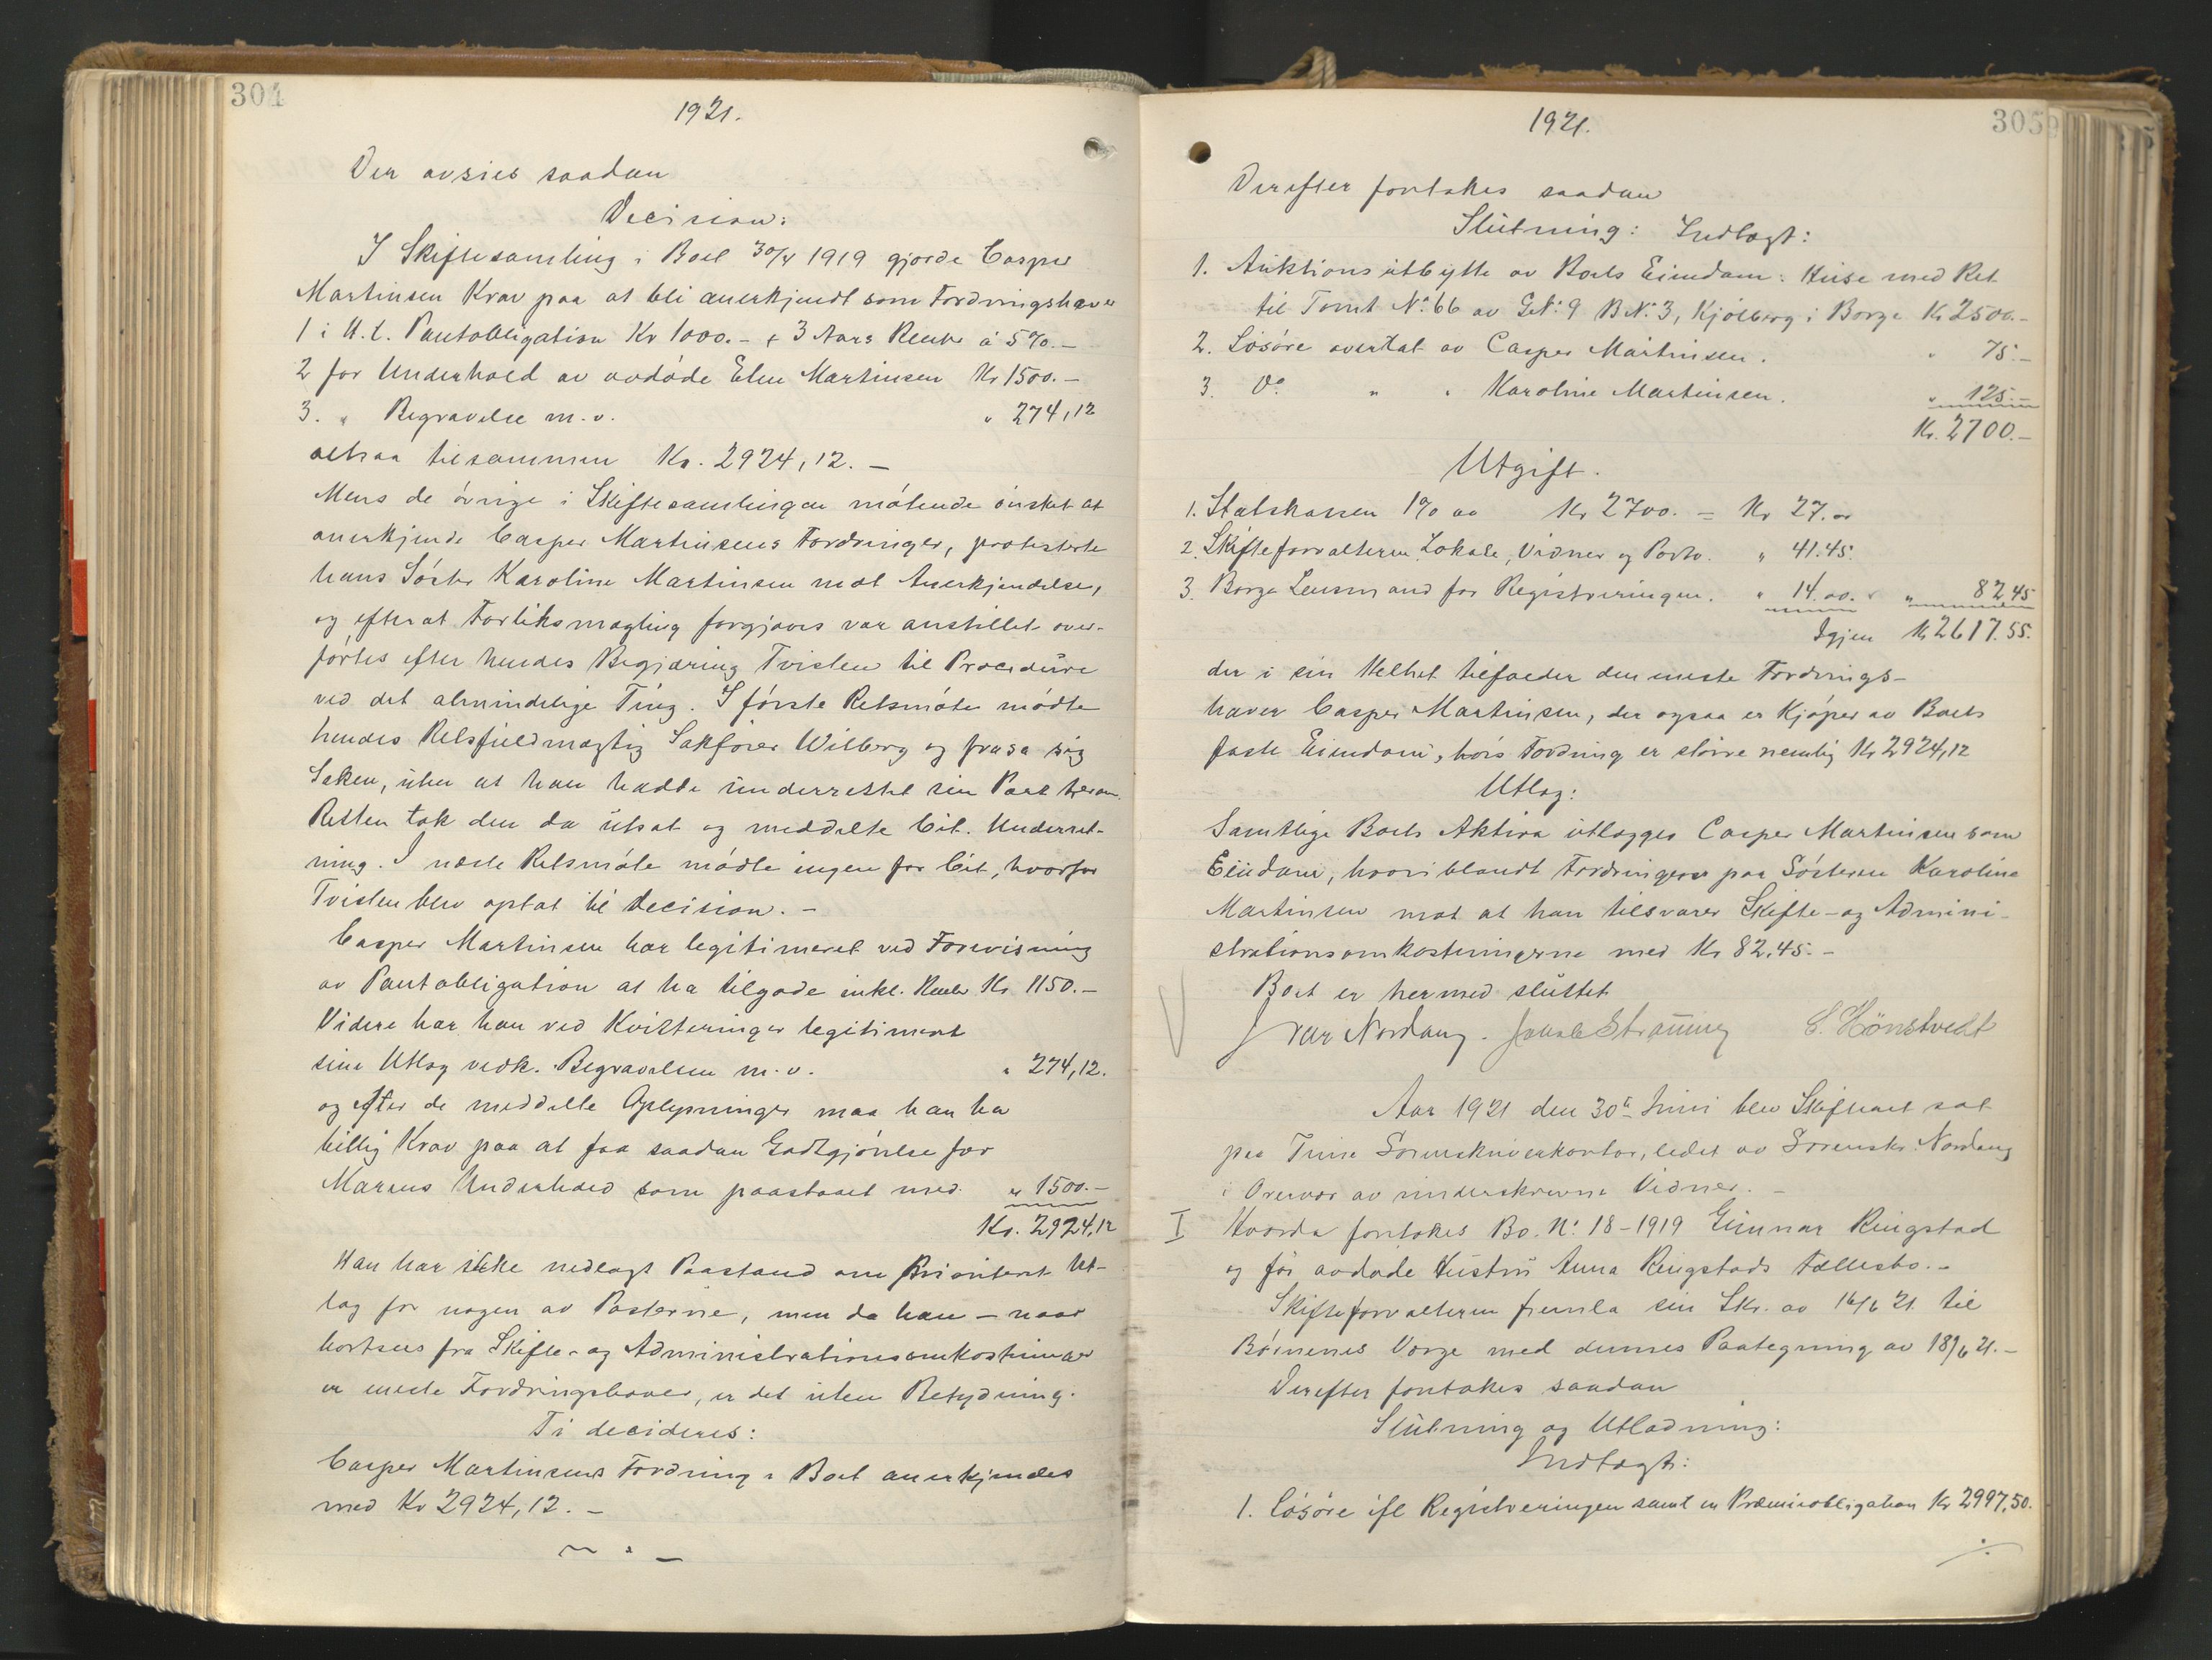 304
1921.
Der avsies saadan
Decision:
I Skiftesamling i Boet 30/4 1919 gjorde Casper
Martinsen Krav paa at bli anerkjendt som Fordringshaver
1 i H.t. Pantobligation Kr 1000.- + 3 Aars Rente á 5%.-
2 for Underhold av avdøde Elen Martinsen Kr 1500.-
3. " Begravelse m.v. " 274,12
altsaa tilsammen Kr. 2924,12.-
Mens de øvrige i Skiftesamlingen møtende ønsket at
anerkjende Casper Martinsens Fordringer, protesterte
hans Søster Karoline Martinsen mot Anerkjendelse,
og efterat Forliksmægling forgjæves var anstillet over-
førtes efter hendes Begjæring Tvisten til Procedure
ved det almindelige Ting. I første Retsmøte mødte
hendes Retsfuldmægtig Sakfører Wilberg og frasa sig
Saken, uten at han hadde underrettet sin Part herom.
Retten tok den da utsat og meddelte Cit. Underret-
ning. I næste Retsmøte mødte ingen for Cit, hvorfor
Tvisten blev optat til Decision.-
Casper Martinsen har legitimeret ved Forevisning
av Pantobligation at ha tilgode inkl. Rente Kr 1150.-
Videre har han ved Kvitteringer legitimert
sine Utlæg vedk. Begravelsen m.v. " 274,12.
og efter de meddelte Oplysninger maa han ha
billig Krav paa at faa saadan Godtgjørelse for
Morens Underhold som paastaaet med " 1500.-
Kr. 2924,12
Han har ikke nedlagt Paastand om Prioritert Ut-
læg for nogen av Posterne, men da han - naar
bortsees fra Skifte- og Administrationsomkostninger
er eneste Fordringshaver, er det uten Betydning.
Ti decideres:
Casper Martinsens Fordring i Boet anerkjendes
med Kr 2924,12.-
305
1921.
Derefter foretakes saadan
Slutning: Indtægt:
1. Auktionsutbytte av Boets Eiendom: Huse med Ret
til Tomt No 66 av G.No 9 B.No 3, Kjølberg i Borge Kr 2500.-
2. Løsøre overtat av Casper Martinsen. " 75.-
3. Do. " " Karoline Martinsen. " 125.-
Kr. 2700.-
Utgift.
1. Statskassen 1% av Kr 2700. = Kr 27.00
2. Skifteforvalteren Lokale, Vidner og Porto. " 41.45.
3. Borge Lensmand for Registreringen. " 14.00. " 82,45
Igjen Kr 2617.55.
der i sin Helhet tilfalder den eneste Fordrings-
haver Casper Martinsen, der ogsaa er Kjøper av Boets
faste Eiendom, hvis Fordring er større nemlig Kr 2924,12
Utlæg:
Samtlige Boets Aktiva utlægges Casper Martinsen som
Eiendom, hvoriblandt Fordringen paa Søsteren Karoline
Martinsen mot at han tilsvarer Skifte- og Admini-
strationsomkostningerne med Kr 82,45.-
Boet er hermed sluttet
Ivar Nordang. Jakob Strønning C. Hönstvedt
Aar 1921 den 30te Juni blev Skifteret sat
paa Tune Sorenskriverkontor, ledet av Sorenskr. Nordang
i Overvær av underskrevne Vidner.-
I Hvorda foretokes Bo. No 18-1919 Gunnar Ringstad
og før avdøde Hustru Anna Ringstads Fællesbo.-
Skifteforvalteren fremla sin Skr. av 16/6 21 til
Børnenes Værge med dennes Paategning av 18/6 21.-
Derefter foretakes saadan
Slutning og Utlodning:
Indtægt:
1. Løsøre ifl Registreringen samt en Præmieobligation Kr 2997,50.